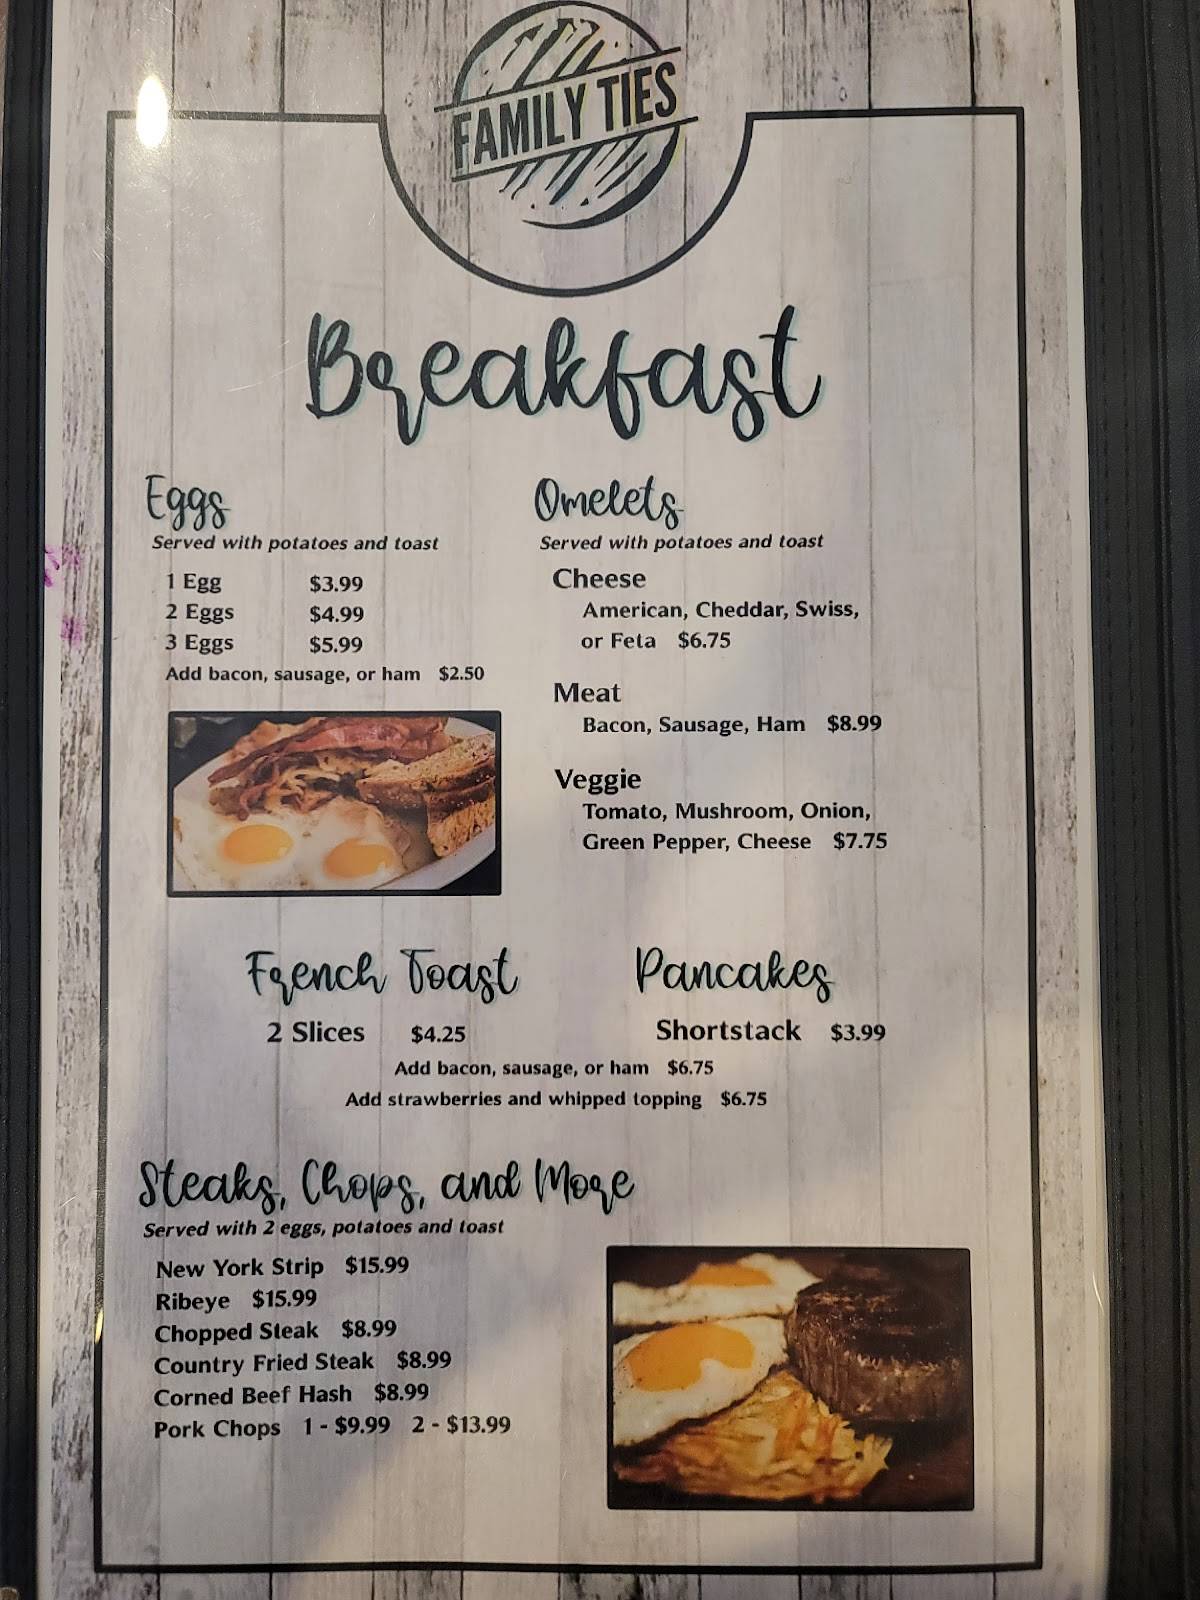 FAMILY TIES
Breakfast
Eggs
Served with potatoes and toast
1 Egg $3.99
2 Eggs $4.99
3 Eggs $5.99
Add bacon, sausage, or ham $2.50
Omelets
Served with potatoes and toast
Cheese
American, Cheddar, Swiss,
or Feta $6.75
Meat
Bacon, Sausage, Ham $8.99
Veggie
Tomato, Mushroom, Onion,
Green Pepper, Cheese $7.75
French Toast
2 Slices $4.25
Pancakes
Shortstack $3.99
Add bacon, sausage, or ham $6.75
Add strawberries and whipped topping $6.75
Steaks, Chops, and More
Served with 2 eggs, potatoes and toast
New York Strip $15.99
Ribeye $15.99
Chopped Steak $8.99
Country Fried Steak $8.99
Corned Beef Hash $8.99
Pork Chops 1 - $9.99 2 - $13.99